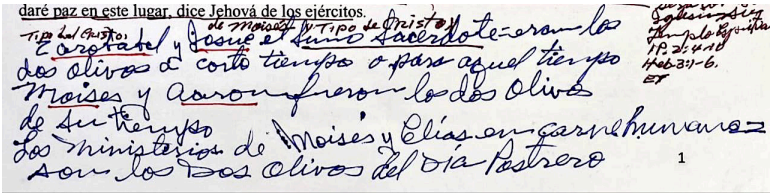 daré paz en este lugar, dice Jehová de los ejércitos.
de Moisés y Tipo de Cristo
Tipo del Cristo,
Zorobabel y Josué el Sumo Sacerdote = eran los
dos olivos a corto tiempo o para aquel tiempo
Moises y Aaron fueron los dos Olivos
de su tiempo
Los Ministerios de Moisés y Elías en carne humana =
son los Dos Olivos del Día Postrero
Iglesia
Templo Espiritual
1P. 2:4-10
Heb. 3:1-6.
Ef
1